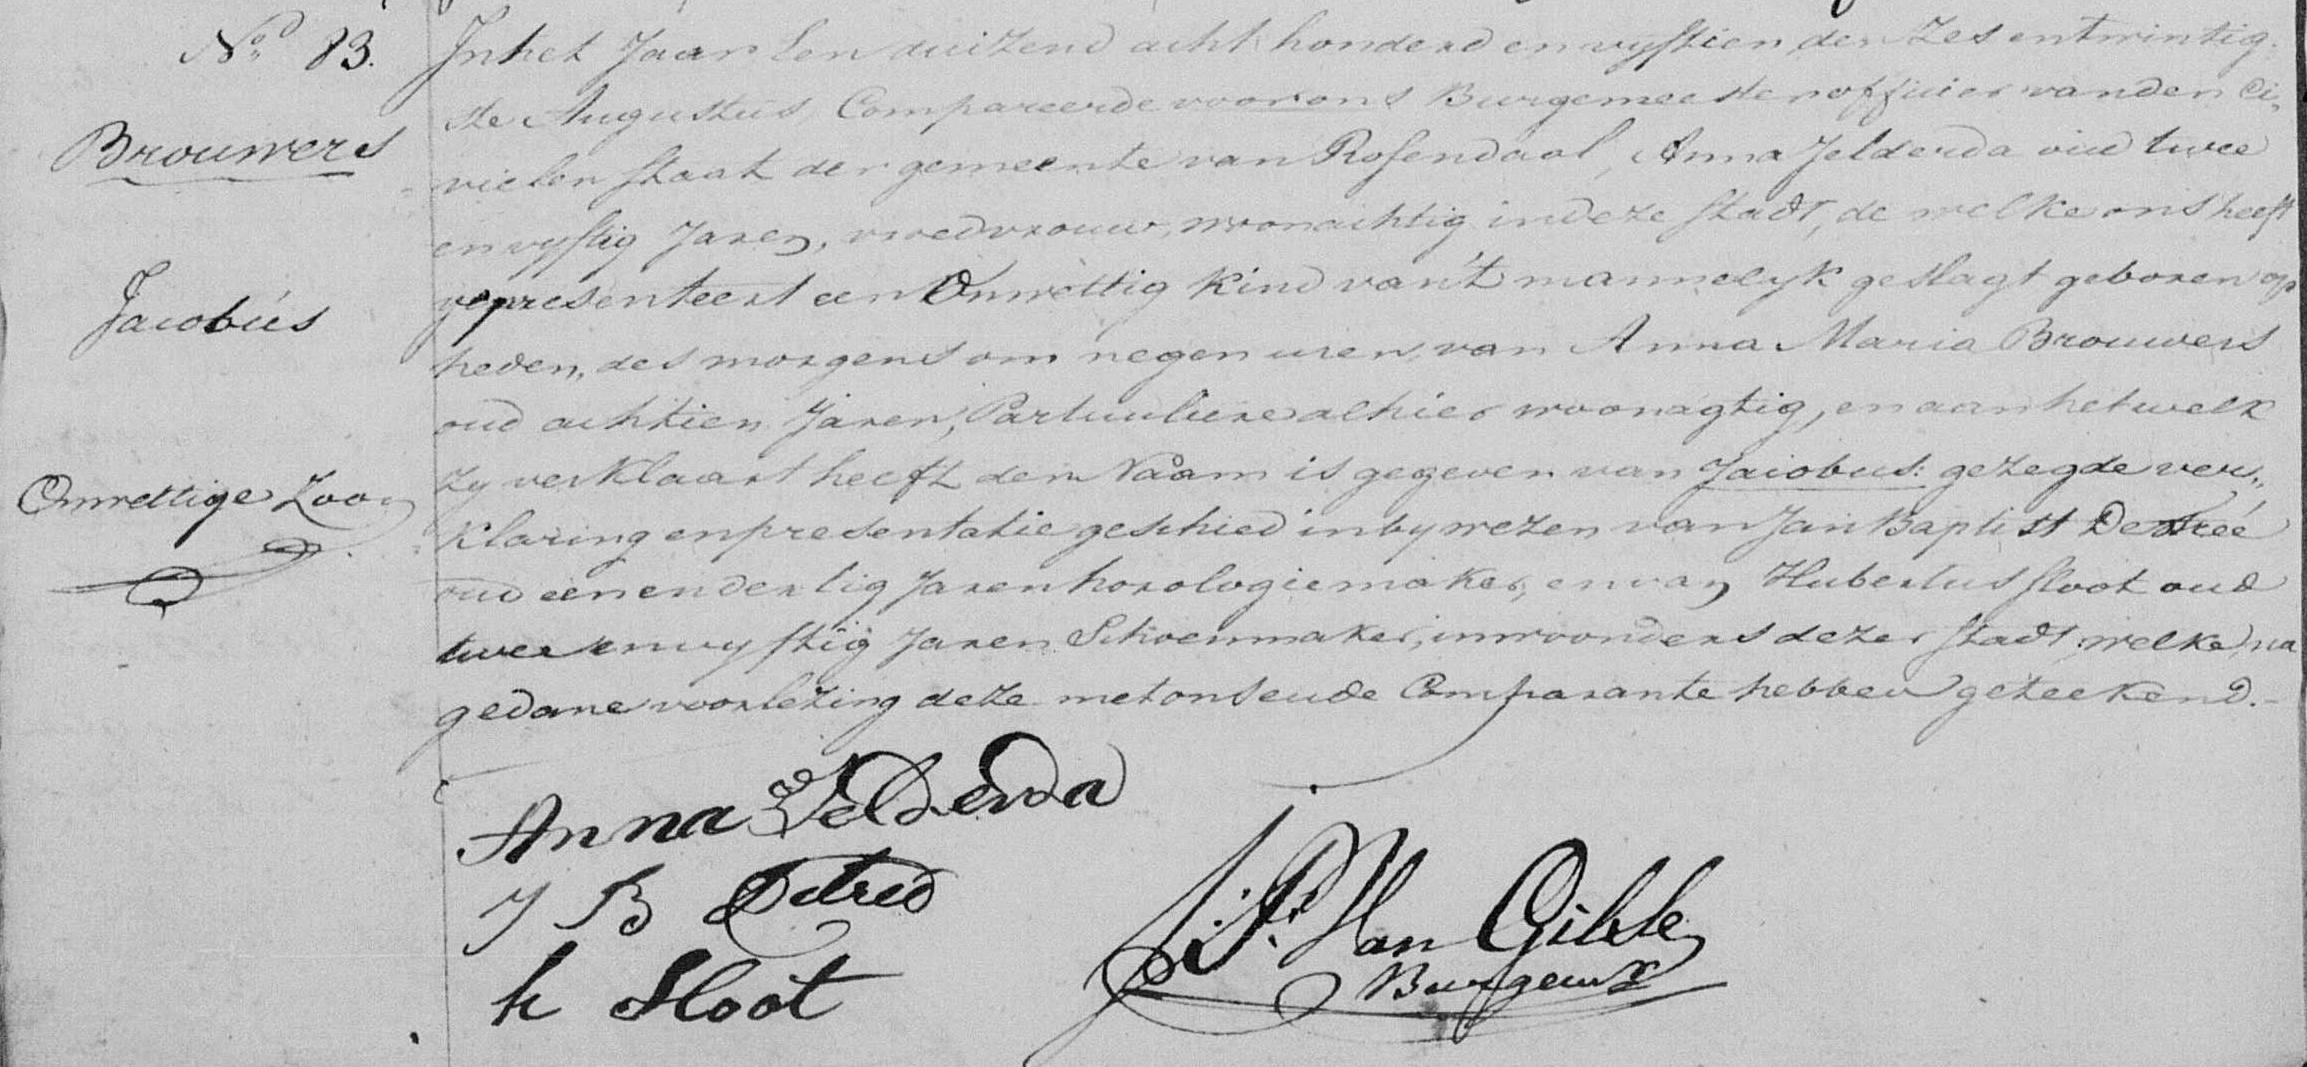 No 83.
Brouwers
Jacobus
Onwettige Zoon
In het Jaar Een duizend acht honderd en vyftien den Zes entwintig
ste Augustus, Compareerde voor ons Burgemeester officier van den Ci„
vielen staat der gemeente van Rosendaal, Anna Jelderda oud twee
en vyftig Jaren, vroedvrouw, woonachtig in deze stadt, de welke ons heeft
gepresenteert een Onwettig kind van't mannelyk geslagt geboren op
heden, des morgens om negen uren, van Anna Maria Brouwers
oud achtien Jaren, Particuliere alhier woonagtig, en aan het welk
zy verklaart heeft den Naam is gegeven van Jacobus: gezegde ver„
klaring en presentatie geschied in bywezen van Jan Baptist Detreé
oud een en dertig Jaren horologiemaker, en van Hubertus sloot oud
twee en vyftig Jaren Schoenmaker, inwoonders dezer stadt, welke, na
gedane voorlezing deze met ons en de Comparante hebben geteekend.
Anna Jelderda
J B Detreé
h Sloot
J. P. Van Gilse
Burgemr